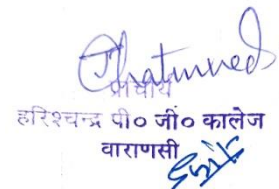 Chaturvedi
प्राचार्य
हरिश्चन्द्र पी० जी० कालेज
वाराणसी